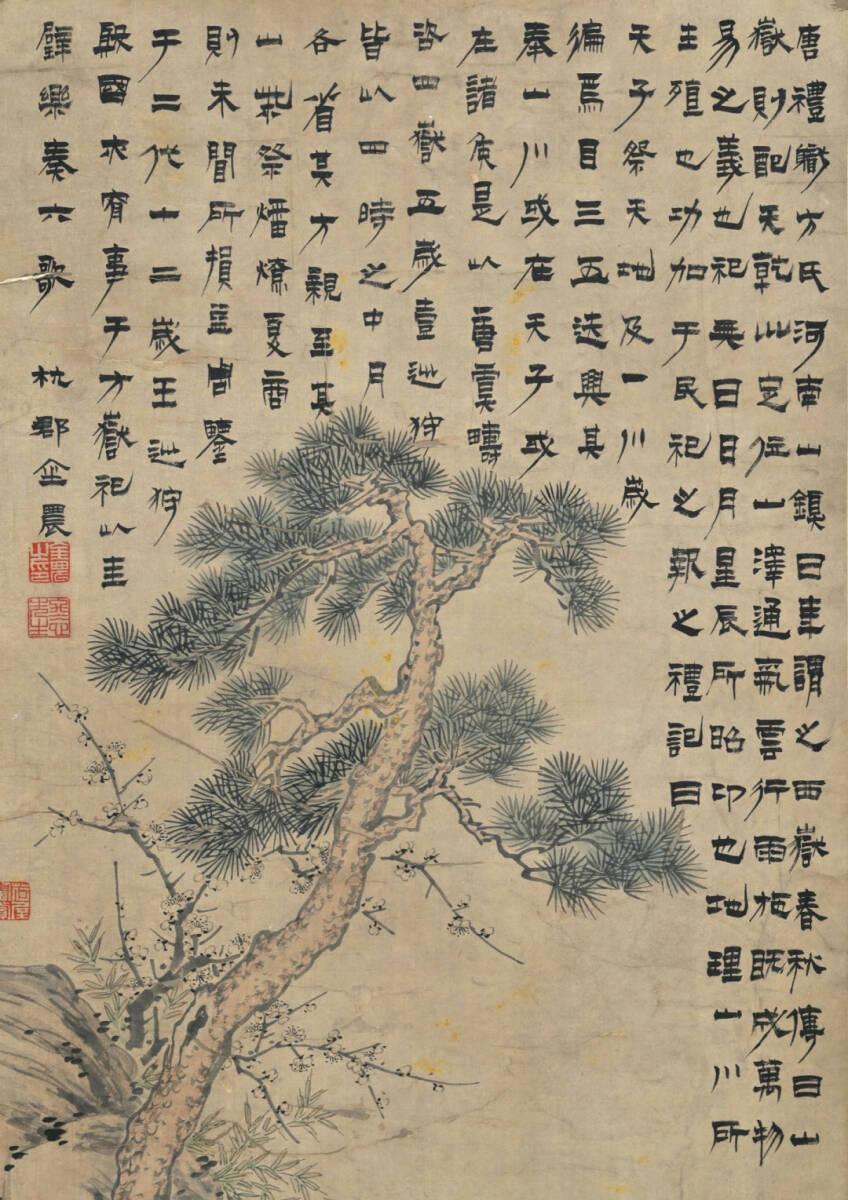 唐禮職方氏河南山鎮曰華謂之西嶽春秋傳曰山
嶽則配天乾坤定位山澤通氣雲行雨施既成萬物
易之義也祀典曰日月星辰所昭卬也地理山川所
生殖也功加于民祀之報之禮記曰
天子祭天地及山川歲
徧焉自三五迭興其
奉山川或在天子或
在諸侯是以唐虞疇
咨四嶽五歲壹巡狩
皆以四時之中月
各省其方親至其
山柴祭燔燎夏商
則未聞所損益周鑒
于二代十二歲王巡狩
殷國亦有事于方嶽祀以圭
璧樂奏六歌 杭郡金農